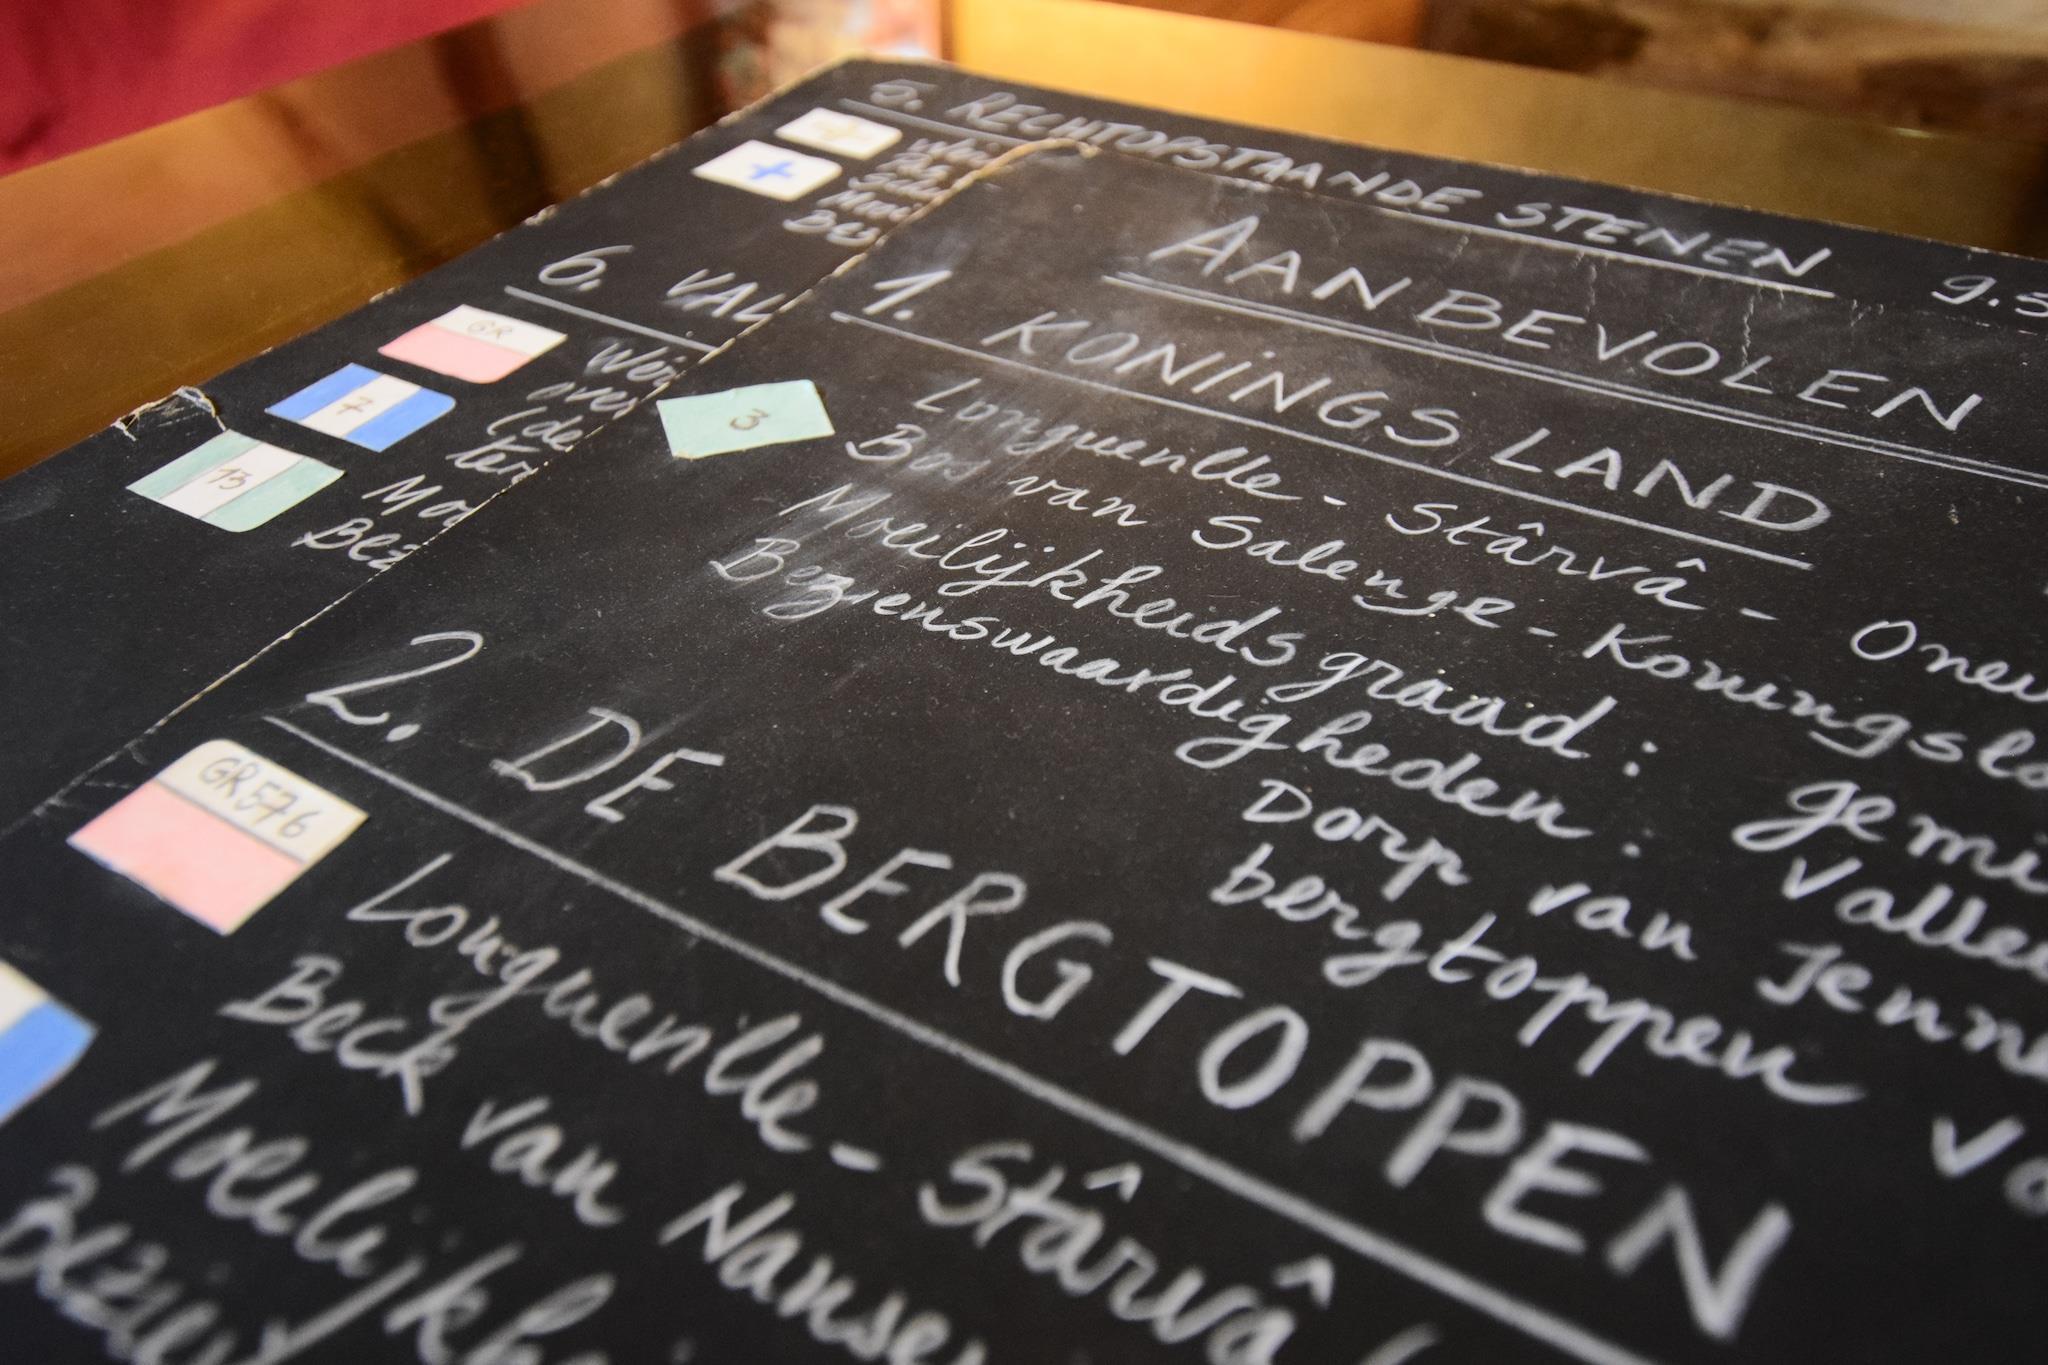 5. RECHTOPSTAANDE STENEN 9.5
+
Bez
6. VAL
GR
7
13
over
(de
Mo
Bez
AANBEVOLEN
1. KONINGSLAND
3
Longueville - Stârvâ - Oneu
Bos van Salenge - Koningslo
Moeilijkheidsgraad : gemi
Bezienswaardigheden : Vallei
Dorp van Jenne
bergtoppen va
2. DE BERGTOPPEN
GR576
Longueville - Stârvâ
Beck van Nanse
Moeilijkhe
Bezien